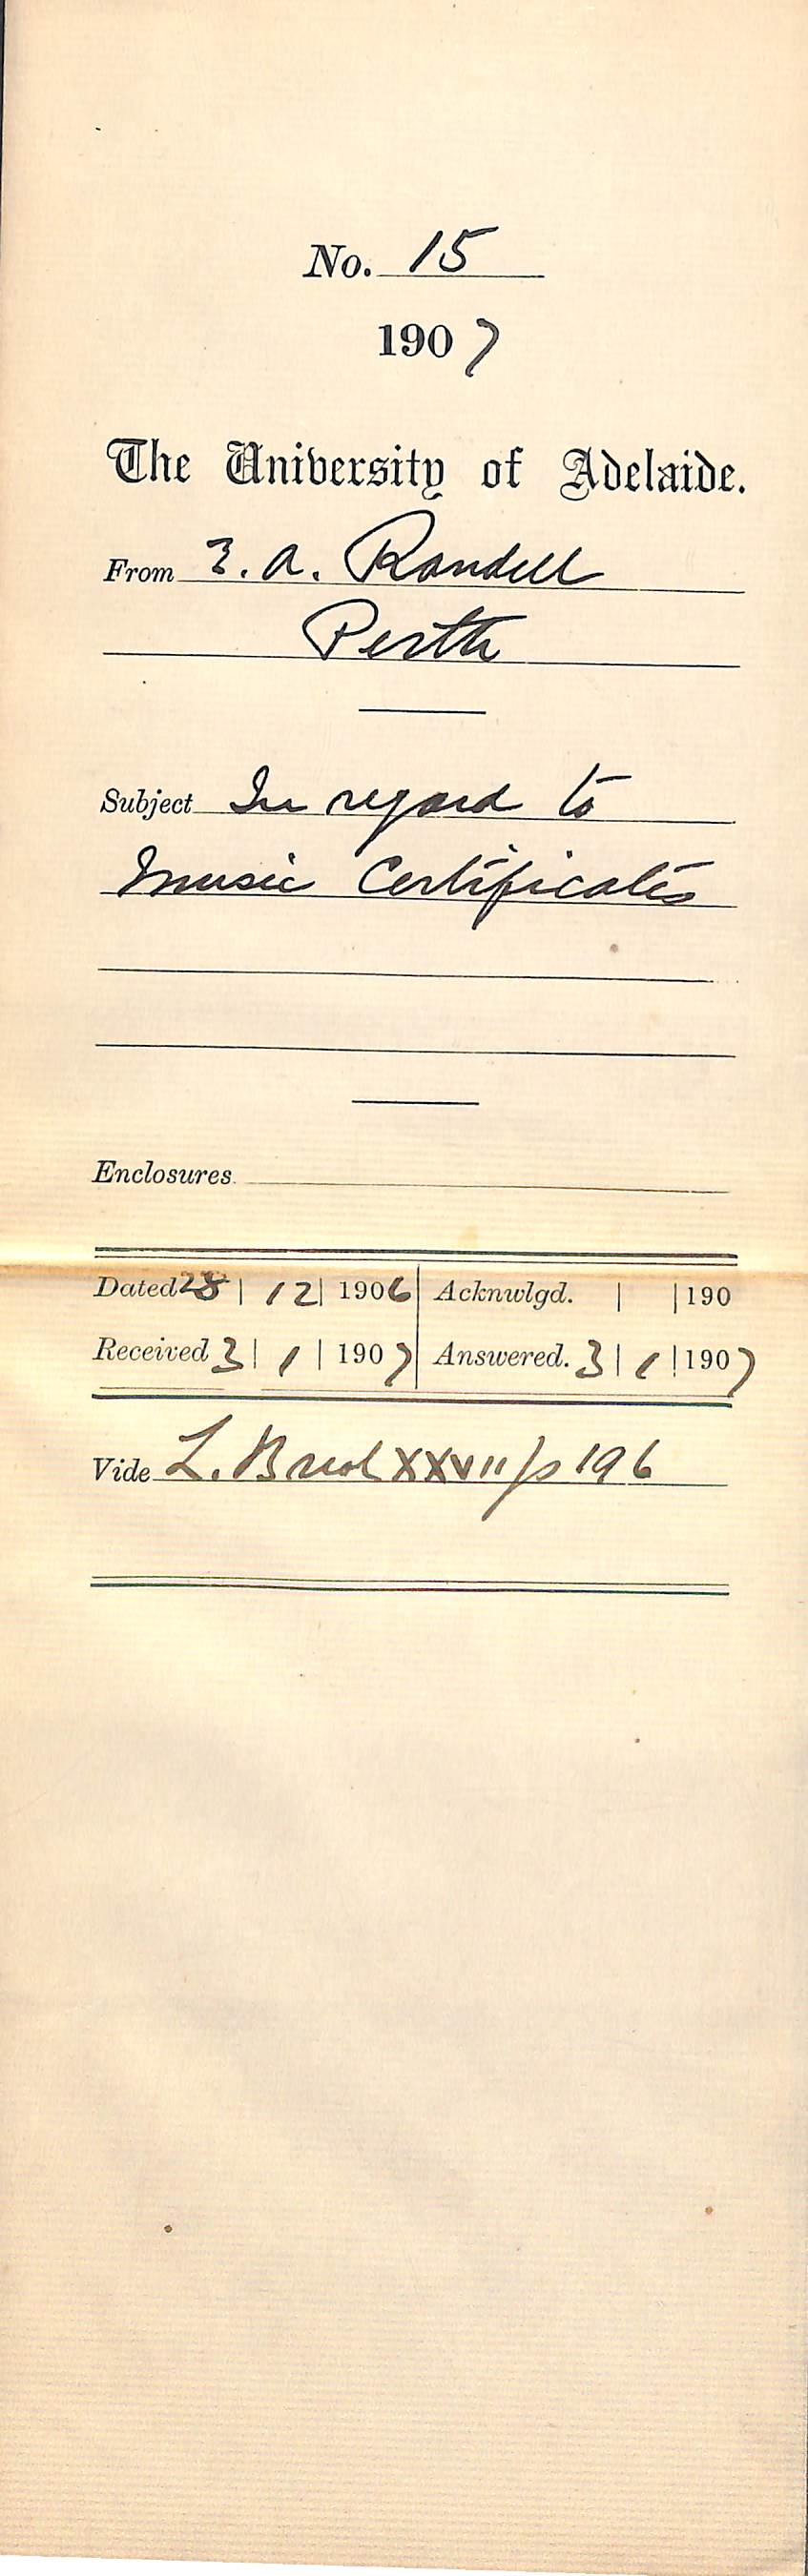 No. 15
1907
The University of Adelaide.
From E. A. Randell
Perth
Subject In regard to
Music Certificates
Enclosures
Dated 28 | 12 | 1906 | Acknwlgd. | | 190
Received 3 | 1 | 1907 | Answered. 3 | 1 | 1907
Vide L. B vol XXVII p 196